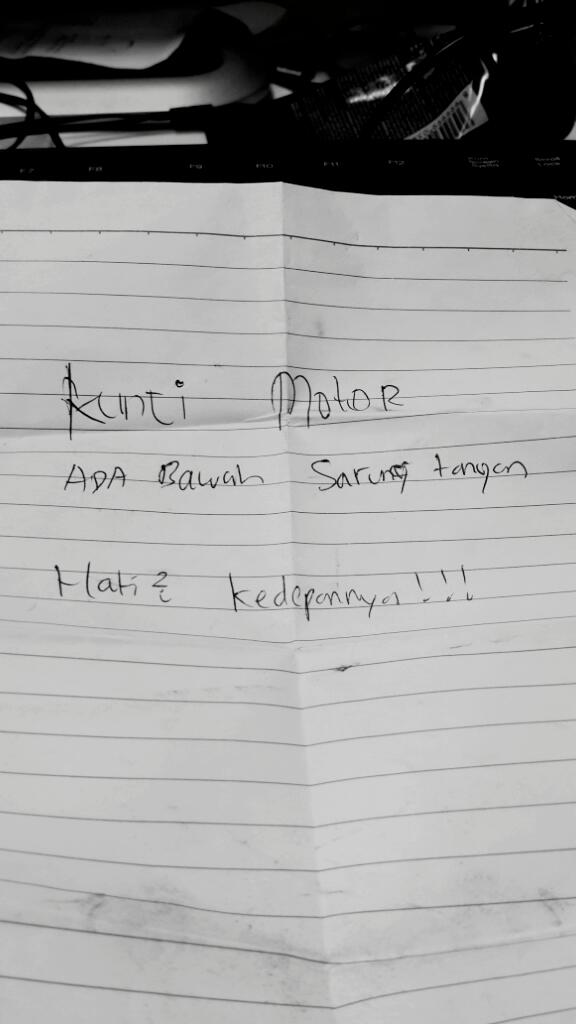 F7 F8 F9 F10 F11 F12 Scroll Lock
Kunti Motor
ADA Bawah Sarung tangan
Hati2 kedepannya!!!